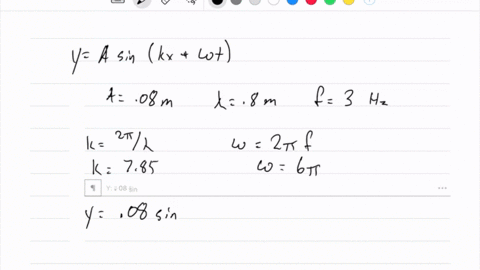 y = A sin (kx + ωt)
A = .08 m λ = .8 m f = 3 Hz
k = 2π/λ ω = 2π f
k = 7.85 ω = 6π
y = .08 sin